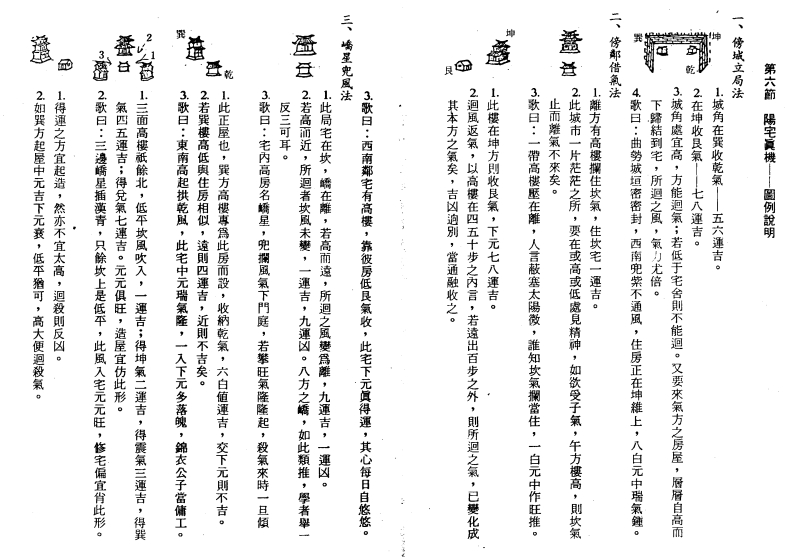 第六節　陽宅眞機——圖例說明
一、傍城立局法
坤
乾
巽
1. 城角在巽收乾氣——五六運吉。
2. 在坤收艮氣——七八運吉。
3. 城角處宜高，方能迴氣；若低于宅舍則不能迴。又要來氣方之房屋，層層自高而
下歸結到宅，所迴之風，氣力尤倍。
4. 歌曰：曲勢城垣密密封，西南兜紫不通風，住房正在坤維上，八白元中瑞氣鍾。
二、傍鄰借氣法
1. 離方有高樓攔住坎氣，住坎宅一運吉。
2. 此城市一片茫茫之所，要在或高或低處見精神，如欲受子氣，午方樓高，則坎氣
止而離氣不來矣。
3. 歌曰：一帶高樓壓在離，人言蔽塞太陽微，誰知坎氣攔當住，一白元中作旺推。
坤
艮
1. 此樓在坤方則收艮氣，下元七八運吉。
2. 迴風返氣，以高樓在四五十步之內言，若遠出百步之外，則所迴之氣，已變化成
其本方之氣矣，吉凶逈別，當通融收之。
3. 歌曰：西南鄰宅有高樓，靠彼房低艮氣收，此宅下元眞得運，其心每日自悠悠。
三、嶠星兜風法
1. 此局宅在坎，嶠在離，若高而遠，所迴之風變爲離，九運吉，一運凶。
2. 若高而近，所迴者坎風未變，一運吉，九運凶。八方之嶠，如此類推，學者舉一
反三可耳。
3. 歌曰：宅內高房名嶠星，兜攔風氣下門庭，若攀旺氣隆隆起，殺氣來時一旦傾
巽
乾
1. 此正屋也，巽方高樓專爲此房而設，收納乾氣，六白値運吉，交下元則不吉。
2. 若巽樓高低與住房相似，遠則四運吉，近則不吉矣。
3. 歌曰：東南高起拱乾風，此宅中元瑞氣隆，一入下元多落魄，錦衣公子當傭工。
2
1
3
1. 三面高樓祇餘北，低平坎風吹入，一運吉；得坤氣二運吉，得震氣三運吉，得巽
氣四五運吉；得兌氣七運吉。元元俱旺，造屋宜仿此形。
2. 歌曰：三邊嶠星插漢青，只餘坎上是低平，此風入宅元元旺，修宅偏宜肖此形。
1. 得運之方宜起造，然亦不宜太高，迴殺則反凶。
2. 如巽方起屋中元吉下元衰，低平猶可，高大便迴殺氣。